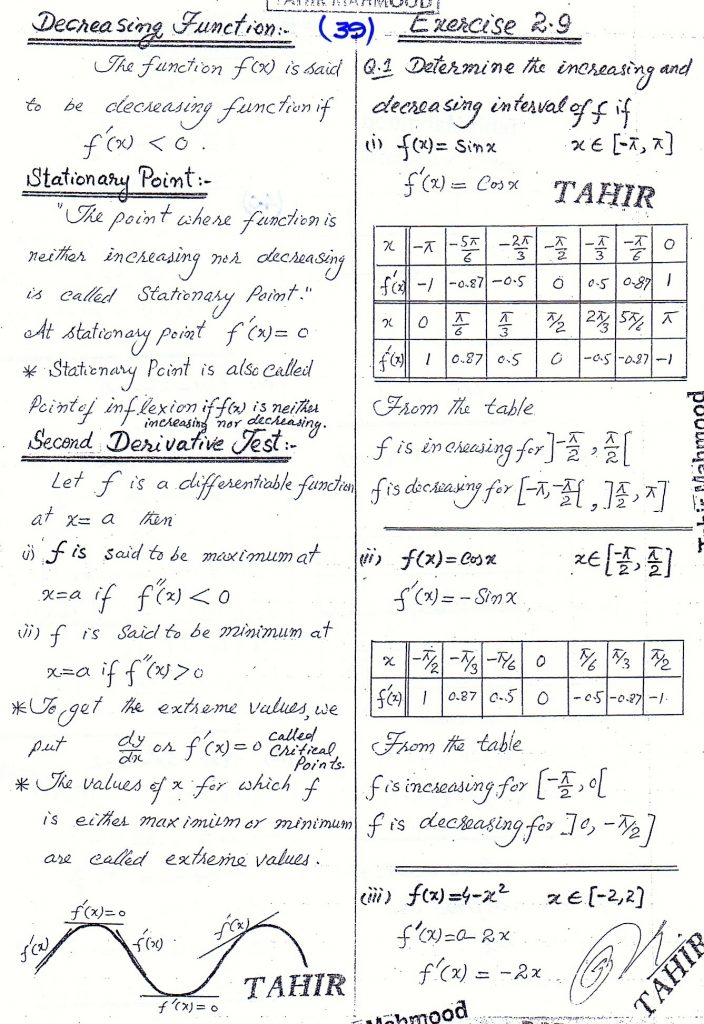 TAHIR MAHMOOD
(39)
Decreasing Function:-
The function f(x) is said
to be decreasing function if
f'(x) < 0 .
Stationary Point:-
"The point where function is
neither increasing nor decreasing
is called Stationary Point."
At stationary point f'(x)= 0
* Stationary Point is also called
Point of inflexion if f(x) is neither
increasing nor decreasing.
Second Derivative Test:-
Let f is a differentiable function
at x= a then
i) f is said to be maximum at
x=a if f''(x) < 0
ii) f is said to be minimum at
x=a if f''(x) > 0
* To get the extreme values, we
put dy/dx or f'(x)=0 called Critical Points.
* The values of x for which f
is either maximium or minimum
are called extreme values.
f'(x)=0
f'(x)
f'(x)
f'(x)
f'(x)=0
TAHIR
Exercise 2.9
Q.1 Determine the increasing and
decreasing interval of f if
(i) f(x)= Sinx x ∈ [-π, π]
f'(x) = Cosx
TAHIR
x -π -5π/6 -2π/3 -π/2 -π/3 -π/6 0
f'(x) -1 -0.87 -0.5 0 0.5 0.87 1
x 0 π/6 π/3 π/2 2π/3 5π/6 π
f'(x) 1 0.87 0.5 0 -0.5 -0.87 -1
From the table
f is increasing for ]-π/2 , π/2[
f is decreasing for [-π,-π/2[ , ]π/2, π]
(ii) f(x)= Cosx x∈[-π/2, π/2]
f'(x)= -Sinx
x -π/2 -π/3 -π/6 0 π/6 π/3 π/2
f'(x) 1 0.87 0.5 0 -0.5 -0.87 -1
From the table
f is increasing for [-π/2 , 0[
f is decreasing for ]0, -π/2]
(iii) f(x)=4-x² x∈[-2,2]
f'(x)=0-2x
f'(x) = -2x
TAHIR
Tahir Mahmood
Mahmood